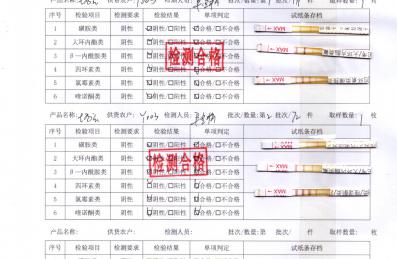 产品名称: 供货农户: 检测人员: 批次/数量:第 1 批次/ 取样数量: 1 枚
序号 检验项目 检测要求 检验结果 单项判定 试纸条存档
1 磺胺类 阴性 ☑阴性/□阳性 ☑合格/□不合格
2 大环内酯类 阴性 ☑阴性/□阳性 ☑合格/□不合格
3 β—内酰胺类 阴性 ☑阴性/□阳性 ☑合格/□不合格
4 四环素类 阴性 ☑阴性/□阳性 ☑合格/□不合格
5 氯霉素类 阴性 ☑阴性/□阳性 ☑合格/□不合格
6 喹诺酮类 阴性 ☑阴性/□阳性 ☑合格/□不合格
检测合格
MAX
MAX
MAX
产品名称: 供货农户: 检测人员: 批次/数量:第 2 批次/ 取样数量: 1 枚
序号 检验项目 检测要求 检验结果 单项判定 试纸条存档
1 磺胺类 阴性 ☑阴性/□阳性 ☑合格/□不合格
2 大环内酯类 阴性 ☑阴性/□阳性 ☑合格/□不合格
3 β—内酰胺类 阴性 ☑阴性/□阳性 ☑合格/□不合格
4 四环素类 阴性 ☑阴性/□阳性 ☑合格/□不合格
5 氯霉素类 阴性 ☑阴性/□阳性 ☑合格/□不合格
6 喹诺酮类 阴性 ☑阴性/□阳性 ☑合格/□不合格
检测合格
MAX
MAX
MAX
产品名称: 供货农户: 检测人员: 批次/数量:第 批次/ 件 取样数量: 枚
序号 检验项目 检测要求 检验结果 单项判定 试纸条存档
1 磺胺类 阴性 □阴性/□阳性 □合格/□不合格